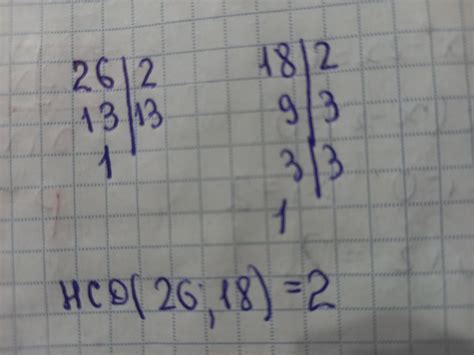 26|2
13|13
1
18|2
9|3
3|3
1
НСД(26;18)=2